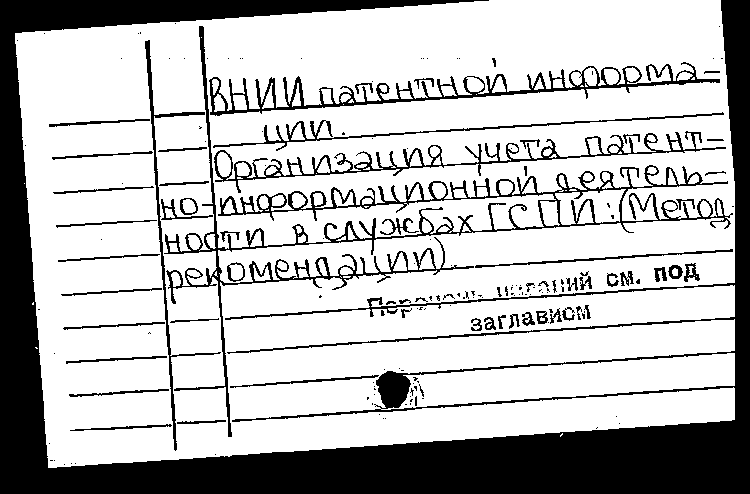 ВНИИ патентной информа-
ции.
Организация учета патент-
но-информационной деятель-
ности в службах ГСПИ: (Метод
рекомендации).
Перечень изданий см. под
заглавием